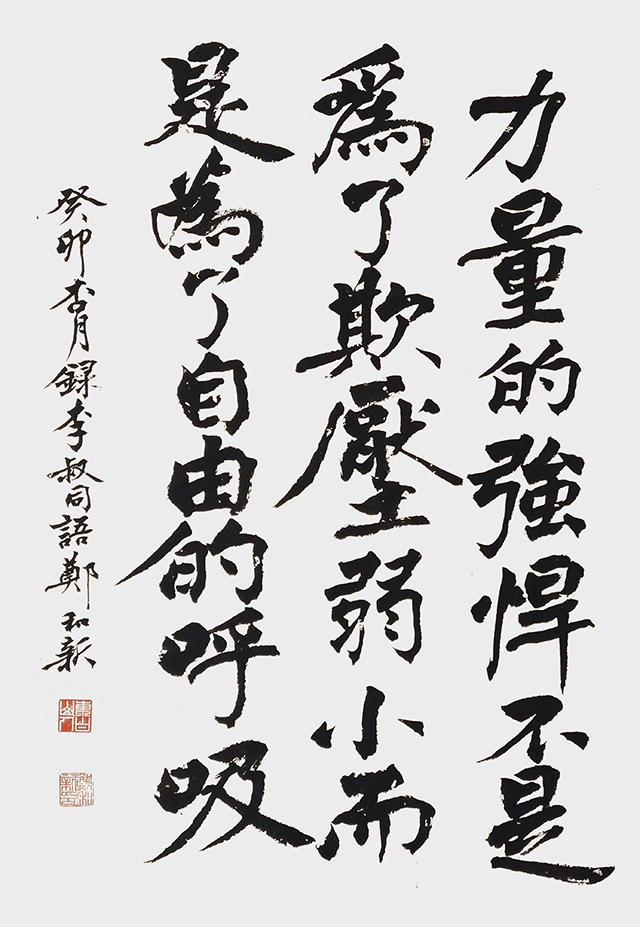 力量的強悍不是
爲了欺壓弱小而
是為了自由的呼吸
癸卯杏月錄李叔同語鄭和新